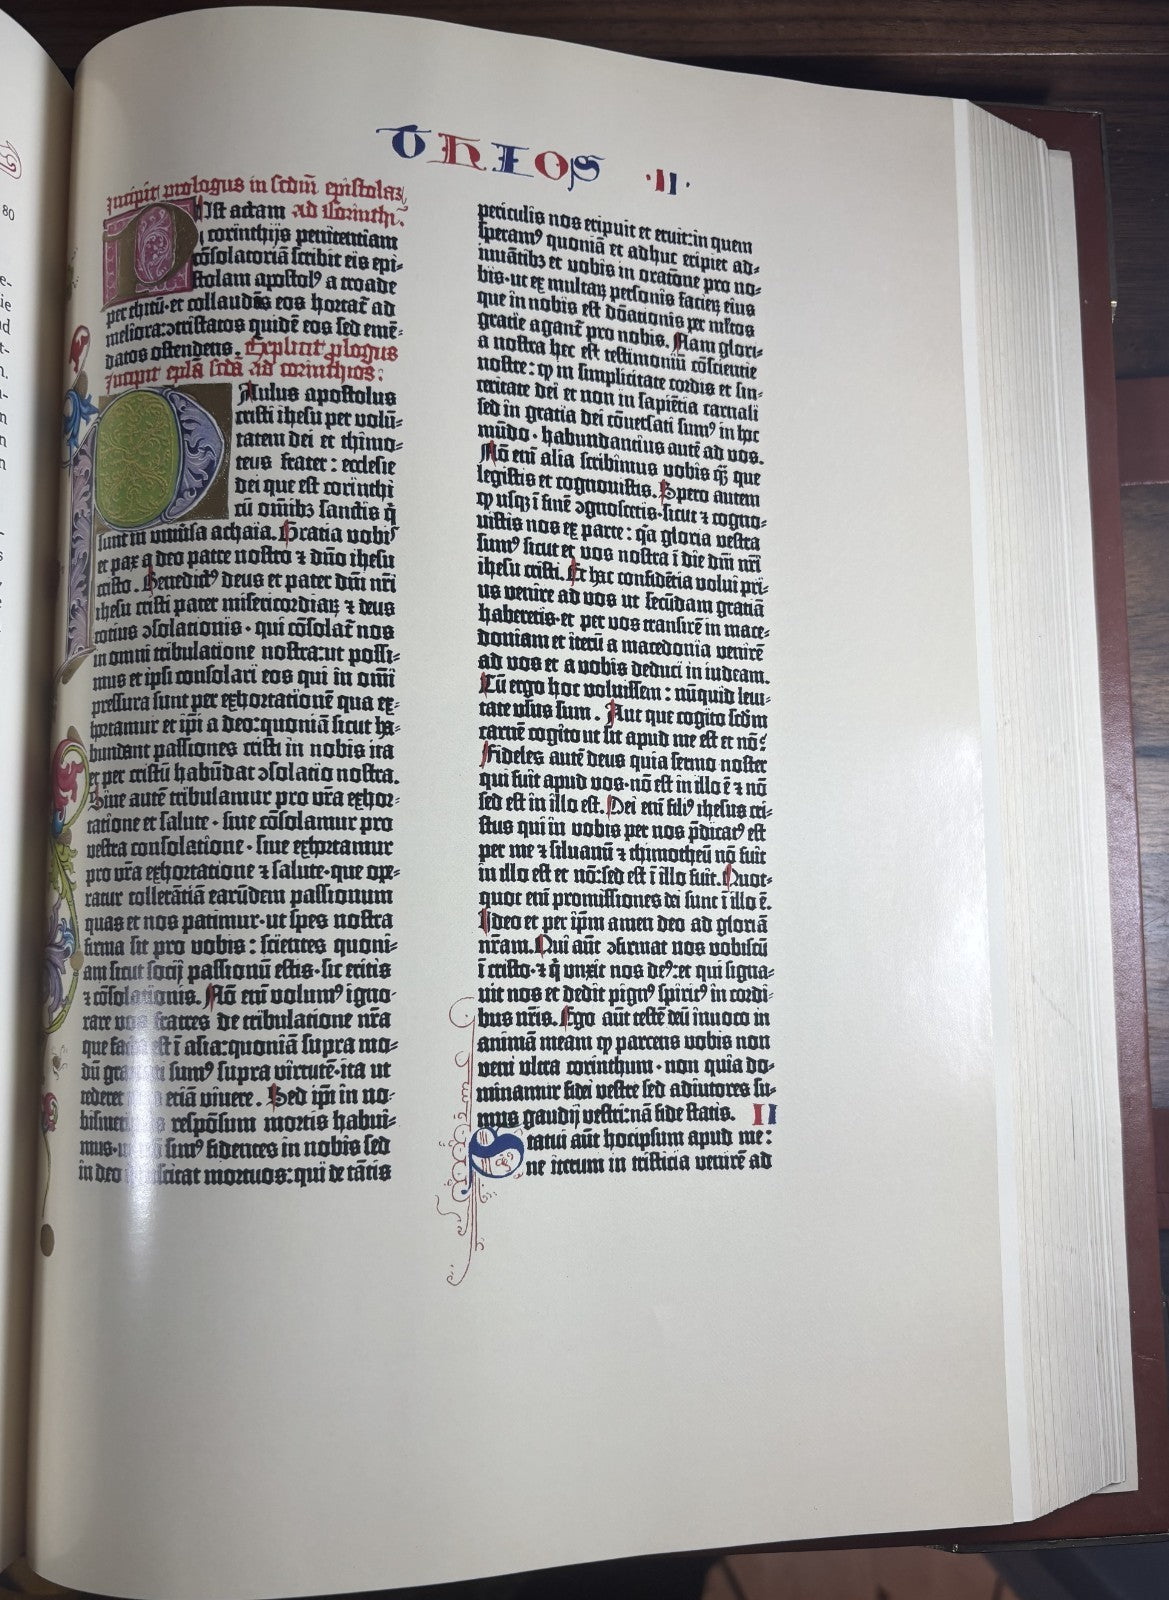 THIOS ·II·
80
Incipit prologus in scdm epistolaꝫ
Post actam ad Corinth.
corinthijs penitentiam
cōsolatoriā scribit eis epi-
stolam apostolꝰ a troade
per thitū·et collaudās eos hortat̄ ad
meliora:ꝯtristatos quidē eos sed emē-
datos ostendens. Explicit plogus
Incipit epla scda ad corinthios:
Paulus apostolus
cristi ihesu per volū-
tatem dei et thimo-
teus frater: ecclesie
dei que est corinthi
cū omībꝫ sanctis q̄
sunt in vniūsa achaia. Gratia vobis
et pax a deo patre nostro ⁊ dn̄o ihesu
cristo. Benedictꝰ deus et pater dn̄i nr̄i
ihesu cristi pater misericordiaꝝ ⁊ deus
totius ꝯsolationis· qui cōsolat̄ nos
in omni tribulatione nostra:ut possi-
mus et ipsi consolari eos qui in om̄i
pressura sunt per exhortationē qua ex-
hortamur et ip̄i a deo:quoniā sicut ha-
bundant passiones cristi in nobis ita
et per cristū habūdat ꝯsolatio nostra.
Siue autē tribulamur pro vr̄a exhor-
tatione et salute· siue cōsolamur pro
vestra consolatione· siue exhortamur
pro vr̄a exhortatione ⁊ salute·que ope-
ratur tollerātiā earūdem passionum
quas et nos patimur·ut spes nostra
firma sit pro vobis: scientes quoni-
am sicut socij passionū estis·sic eritis
⁊ cōsolationis. Nō em̄ volumꝰ igno-
rare vos fratres de tribulatione nr̄a
que facta est ī asia:quoniā supra mo-
dū grauati sumꝰ supra virtutē·ita ut
tederet etiā viuere. Sed ip̄i in no-
bismet respōsum mortis habui-
mus· sumꝰ fidentes in nobis sed
in deo scitat mortuos:qui de tātis
periculis nos eripuit et eruit:in quem
speramꝰ quoniā et adhuc eripiet ad-
iuuātibꝫ et vobis in oratōne pro no-
bis·ut ex multaꝝ personis facieꝝ eius
que in nobis est dōationis per multos
gratie agant̄ pro nobis. Nam glori-
a nostra hec est testimoniū cōscientie
nostre: ꝙ in simplicitate cordis et sin-
ceritate dei et non in sapiētia carnali
sed in gratia dei cōuersati sumꝰ in hoc
mūdo· habundantius autē ad vos.
Nō em̄ alia scribimus vobis q̄ꝫ que
legistis et cognouistis. Spero autem
ꝙ usqꝫ ī finē ꝯgnoscetis·sicut ⁊ cogno-
uistis nos ex parte: q̄a gloria vestra
sumꝰ sicut et vos nostra ī die dn̄i nr̄i
ihesu cristi. Et hac confidētia volui pri-
us venire ad vos ut secūdam gratiā
haberetis·et per vos transire in mace-
doniam et iterū a macedonia venirē
ad vos et a vobis deduci in iudeam.
Cū ergo hoc voluissem: nūquid leui-
tate usus sum. Aut que cogito scdm
carnē cogito ut sit apud me est et nō:
Fideles autē deus quia sermo noster
qui fuit apud vos·nō est in illo ē ⁊ nō
sed est in illo est. Dei em̄ filiꝰ ihesus cri-
stus qui in vobis per nos p̄dicatꝰ est
per me ⁊ siluanū ⁊ thimotheū nō fuit
in illo est et nō:sed est ī illo fuit. Quot-
quot em̄ promissiones dei sunt ī illo ē.
Ideo et per ip̄m amen deo ad gloriā
nr̄am. Qui aūt ꝯfirmat nos vobiscū
ī cristo·⁊ q̄ vnxit nos deꝰ:et qui signa-
uit nos et dedit pignꝰ spiritꝰ in cordi-
bus nr̄is. Ego aūt testē deū inuoco in
animā meam ꝙ parcens vobis non
veni vltra corinthum· non quia do-
minamur fidei vestre sed adiutores su-
mus gaudij vestri:nā fide statis. II
Statui aūt hoc ipsum apud me:
ne iterum in tristicia venirē ad